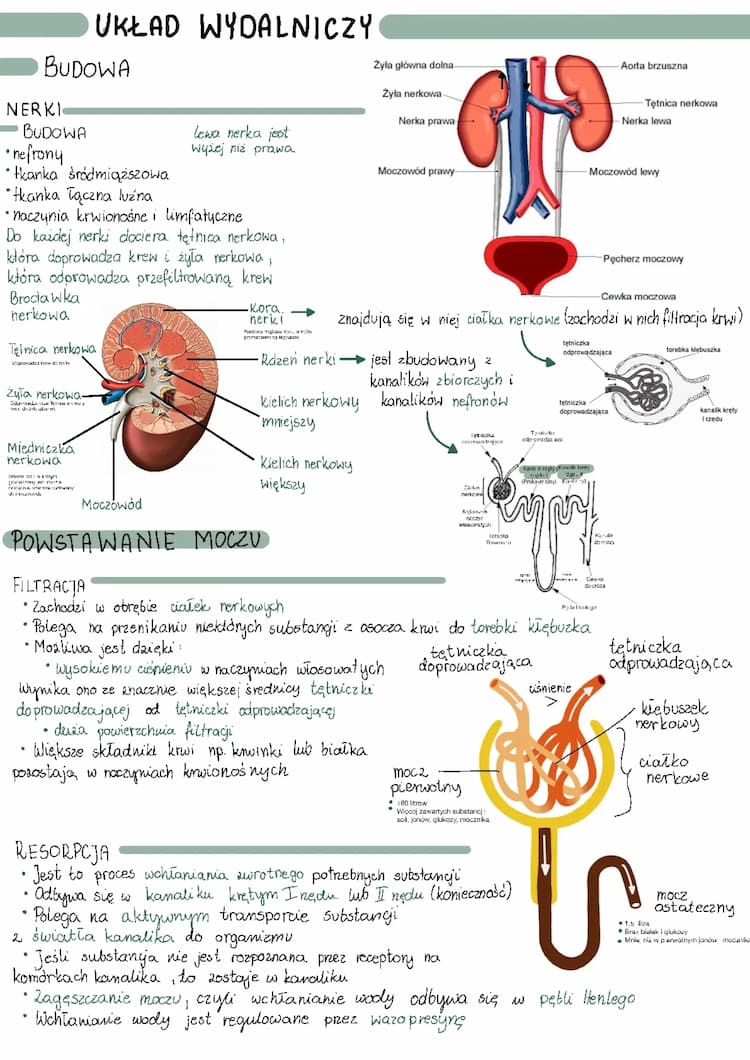 UKŁAD WYDALNICZY
BUDOWA
NERKI
BUDOWA
• nefrony
• tkanka śródmiąższowa
• tkanka łączna luźna
• naczynia krwionośne i limfatyczne
lewa nerka jest
wyżej niż prawa
Do każdej nerki dociera tętnica nerkowa,
która doprowadza krew i żyła nerkowa,
która odprowadza przefiltrowaną krew
Żyła główna dolna
Żyła nerkowa
Nerka prawa
Moczowód prawy
Aorta brzuszna
Tętnica nerkowa
Nerka lewa
Moczowód lewy
Pęcherz moczowy
Cewka moczowa
Brodawka
nerkowa
Tętnica nerkowa
Żyła nerkowa
Miedniczka
nerkowa
Moczowód
Kora
nerki
znajdują się w niej ciałka nerkowe (zachodzi w nich filtracja krwi)
Rdzeń nerki
jest zbudowany z
kanalików zbiorczych i
kanalików nefronów
Kielich nerkowy
mniejszy
Kielich nerkowy
większy
tętniczka
odprowadzająca
torebka kłębuszka
tętniczka
doprowadzająca
kanalik kręty
I rzędu
POWSTAWANIE MOCZU
FILTRACJA
• Zachodzi w obrębie ciałek nerkowych
• Polega na przenikaniu niektórych substancji z osocza krwi do torebki kłębuszka
• Możliwa jest dzięki:
• wysokiemu ciśnieniu w naczyniach włosowatych
Wynika ono ze znacznie większej średnicy tętniczki
doprowadzającej od tętniczki odprowadzającej
• duża powierzchnia filtracji
• Większe składniki krwi np. krwinki lub białka
pozostają w naczyniach krwionośnych
tętniczka
doprowadzająca
tętniczka
odprowadzająca
ciśnienie
>
kłębuszek
nerkowy
ciałko
nerkowe
mocz
pierwotny
• 180 litrów
• Więcej zawartych substancji:
soli, jonów, glukozy, mocznika
RESORPCJA
• Jest to proces wchłaniania zwrotnego potrzebnych substancji
• Odbywa się w kanaliku krętym I rzędu lub II rzędu (konieczność)
• Polega na aktywnym transporcie substancji
z światła kanalika do organizmu
• Jeśli substancja nie jest rozpoznana przez receptory na
komórkach kanalika, to zostaje w kanaliku
• Zagęszczanie moczu, czyli wchłanianie wody odbywa się w pętli Henlego
• Wchłanianie wody jest regulowane przez wazopresynę
mocz
ostateczny
• 1,5 litra
• Brak białek i glukozy
• Mniej niż w pierwotnym jonów mocznika